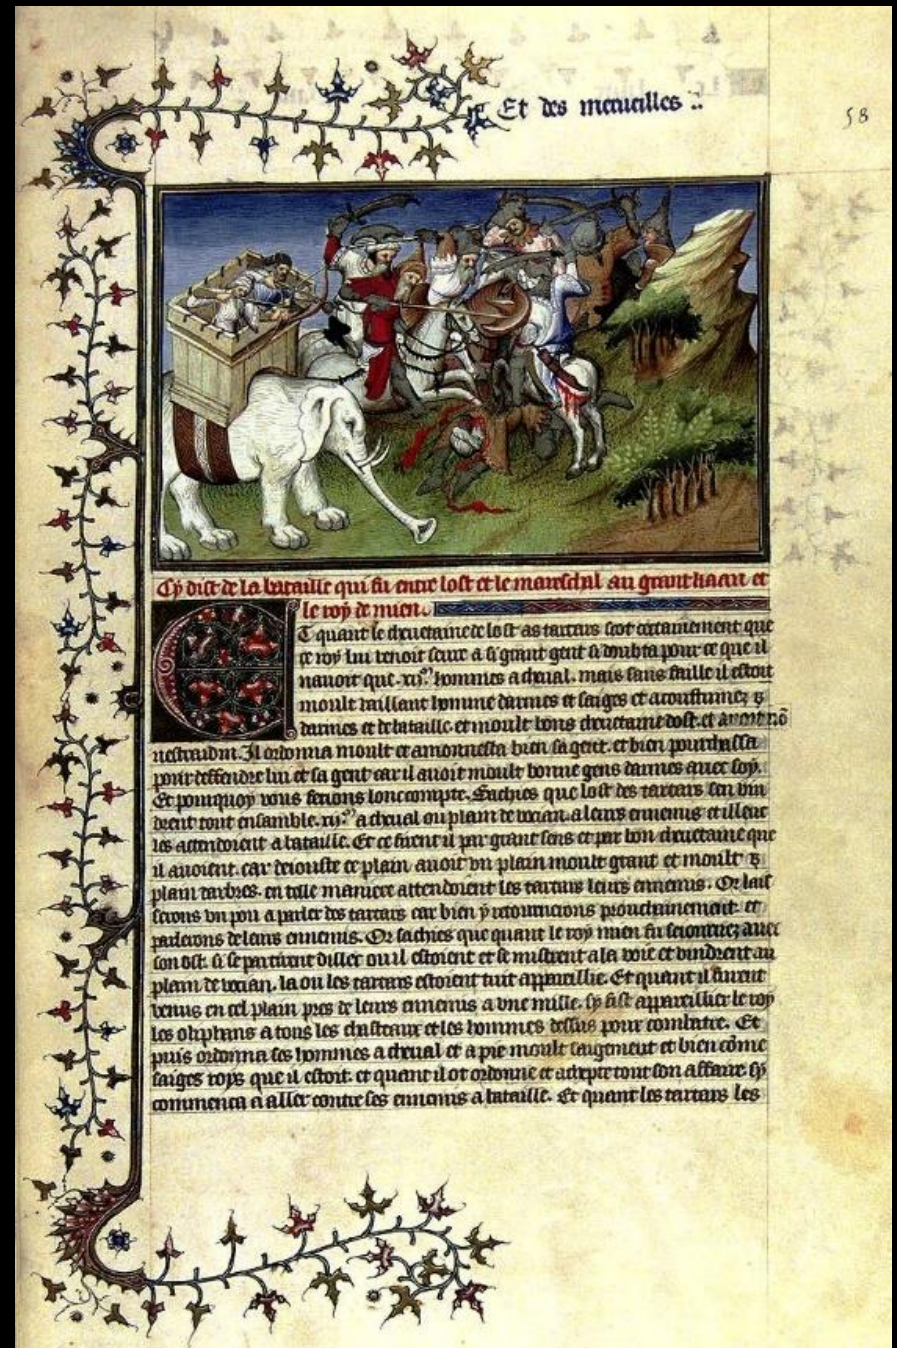 Et des merueilles
58
Cy dist de la bataille qui fu entre lost et le mareschal au grant kaan et
le roy de mien.
Et quant le cheuetaine de lost as tartars scot certainement que
ce roy lui venoit seure a si grant gent si doubta pour ce que il
nauoit que .xij.m hommes a cheual. mais sans faille il estoit
moult vaillant homme darmes et saiges et acoustumez
darmes et de bataille. et moult bons cheuetaine dost. et auoit nō
nestraidin. Il ordonna moult et amonnesta bien sa gent. et bien pourchassa
pour deffendre lui et sa gent car il auoit moult bonne gens darmes auec soy.
Et pourquoy vous ferons lonc compte. Sachies que lost des tartars sen vin
drent tout ensamble .xij.m a cheual ou plain de vocian. a leurs ennemis et illeuc
les attendoient a bataille. Et ce firent il par grant sens et par bon cheuetaine que
il auoient. car deiouste ce plain auoit vn plain moult grant et moult
plain darbres. en telle maniere attendoient les tartars leurs ennemis. Or lais
serons vn pou a parler des tartars car bien y retournerons prouchainement. et
parlerons de leurs ennemis. Or sachies que quant le roy mien fu seiournez auec
son ost. si se partirent dillec ou il estoient et se mistrent a la voie et vindrent au
plain de vocian. la ou les tartars estoient tuit appareillie. Et quant il furent
venus en cel plain pres de leurs ennemis a vne mille. sy fist appareillier le roy
les oliphans a tous les chasteaux et les hommes dessus pour combatre. Et
puis ordonna ses hommes a cheual et a pie moult saigement et bien cōme
saiges roys que il estoit. et quant il ot ordonne et tout son affaire. sy
commenca a aller contre ses ennemis a bataille. Et quant les tartars les